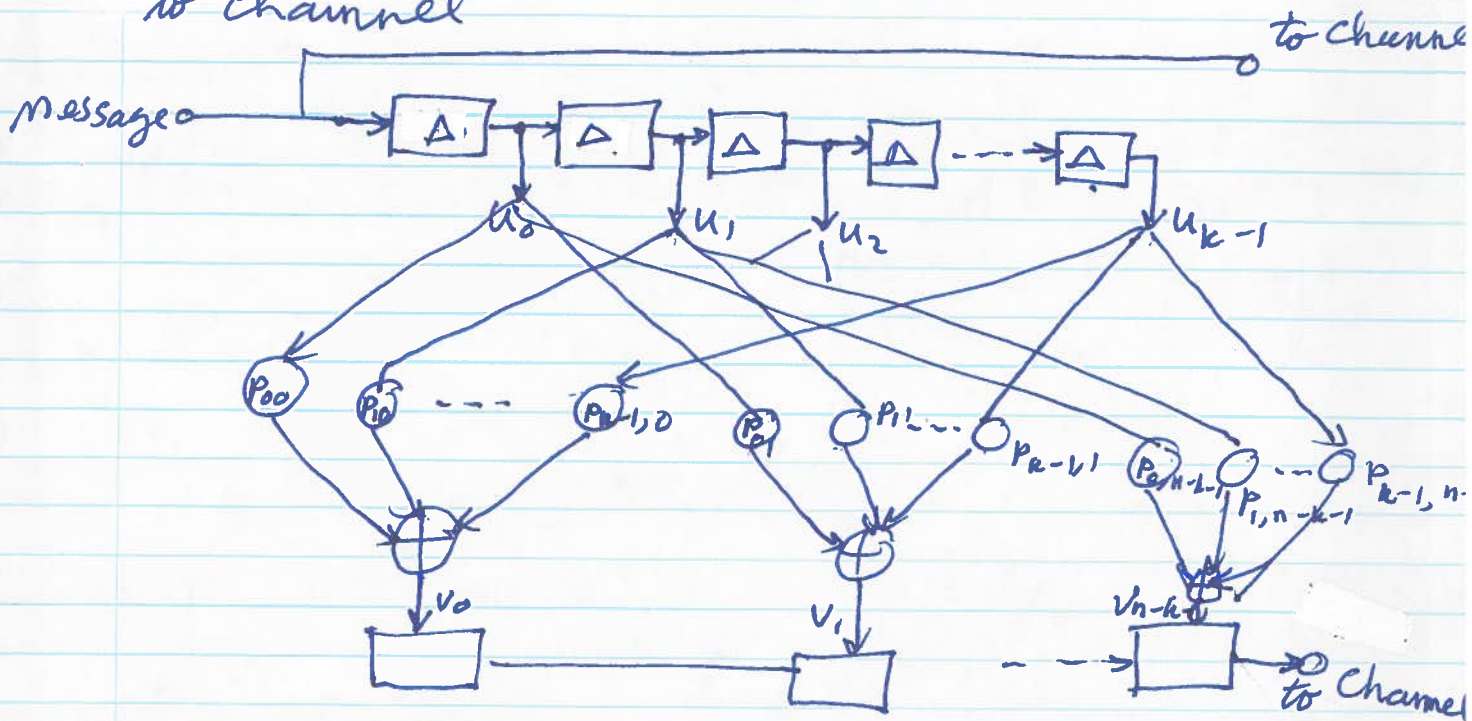 to Channel
to Channe
Message
Δ Δ Δ Δ --- Δ
u0 u1 u2 uk-1
P00 P10 ---- Pk-1,0 P01 P11 ---- Pk-1,1 P0,n-k-1 P1,n-k-1 --- Pk-1,n-
V0 V1 Vn-k-1
to Channel